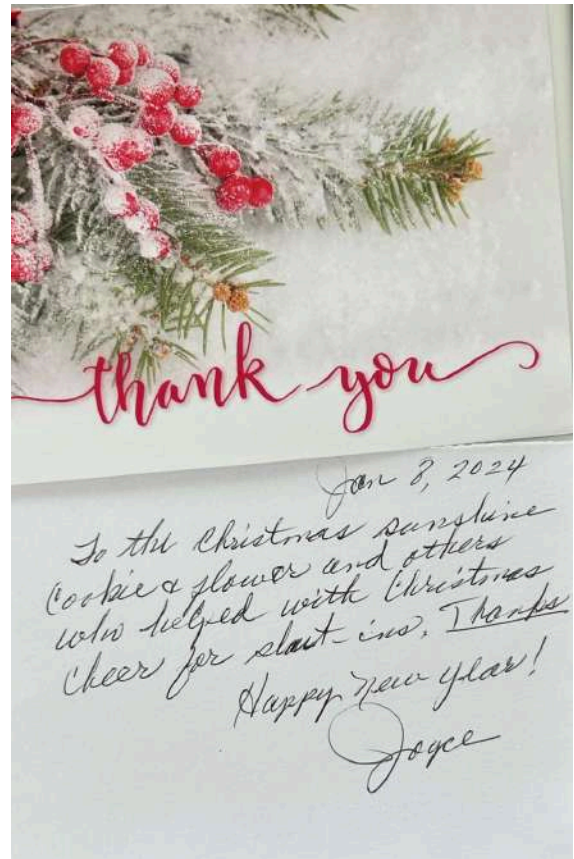 thank you
Jan 8, 2024
To the Christmas sunshine
Cookie & flower and others
who helped with Christmas
Cheer for shut-ins. Thanks
Happy New Year!
Joyce